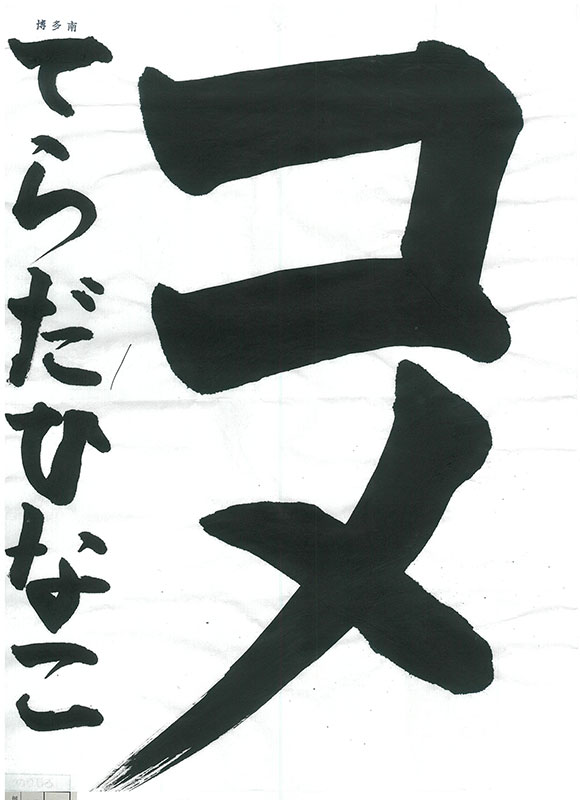 コメ
博多南
てらだひなこ